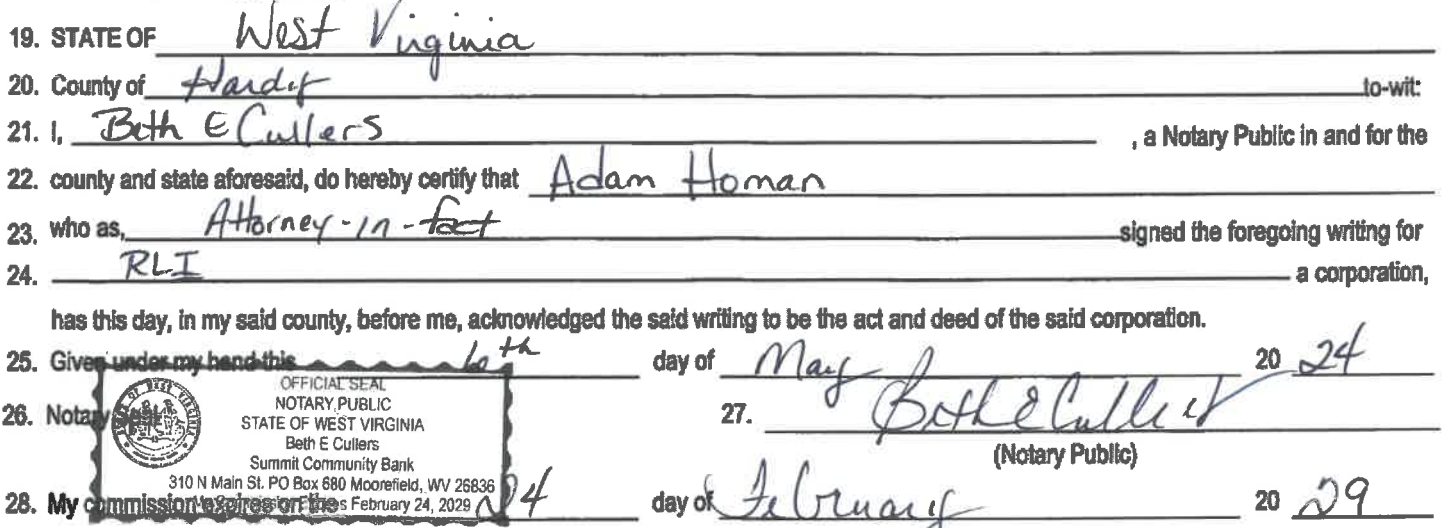 19. STATE OF West Virginia
20. County of Hardy to-wit:
21. I, Beth E Cullers , a Notary Public in and for the
22. county and state aforesaid, do hereby certify that Adam Homan
23. who as, Attorney-in-fact signed the foregoing writing for
24. RLI a corporation,
has this day, in my said county, before me, acknowledged the said writing to be the act and deed of the said corporation.
25. Given under my hand this 6th day of May 20 24
OFFICIAL SEAL
NOTARY PUBLIC
26. Notary Seal STATE OF WEST VIRGINIA 27. Beth E Cullers
Beth E Cullers
Summit Community Bank (Notary Public)
310 N Main St. PO Box 680 Moorefield, WV 26836
28. My commission expires on the 24 day of February 20 29
My Commission Expires February 24, 2029